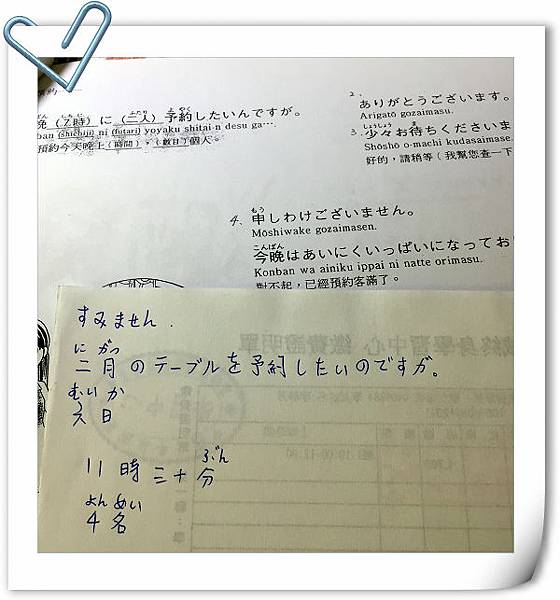 晩（7時）に（二人）予約したいんですが。
ban (shichiji) ni (futari) yoyaku shitai-n desu ga…
預約今天晚上（時間），（數目）個人。
2.
ありがとうございます。
Arigatō gozaimasu.
3. 少々お待ちくださいま
Shōshō o-machi kudasaimase.
好的，請稍等（我幫您查一下
4. 申しわけございません。
Mōshiwake gozaimasen.
こんばん
今晩はあいにくいっぱいになってお
Konban wa ainiku ippai ni natte orimasu.
對不起，已經預約客滿了。
すみません.
にがつ
二月のテーブルを予約したいのですが。
むいか
六日
ぶん
11時三十分
よんめい
4名
終身學習中心 繳費證明單